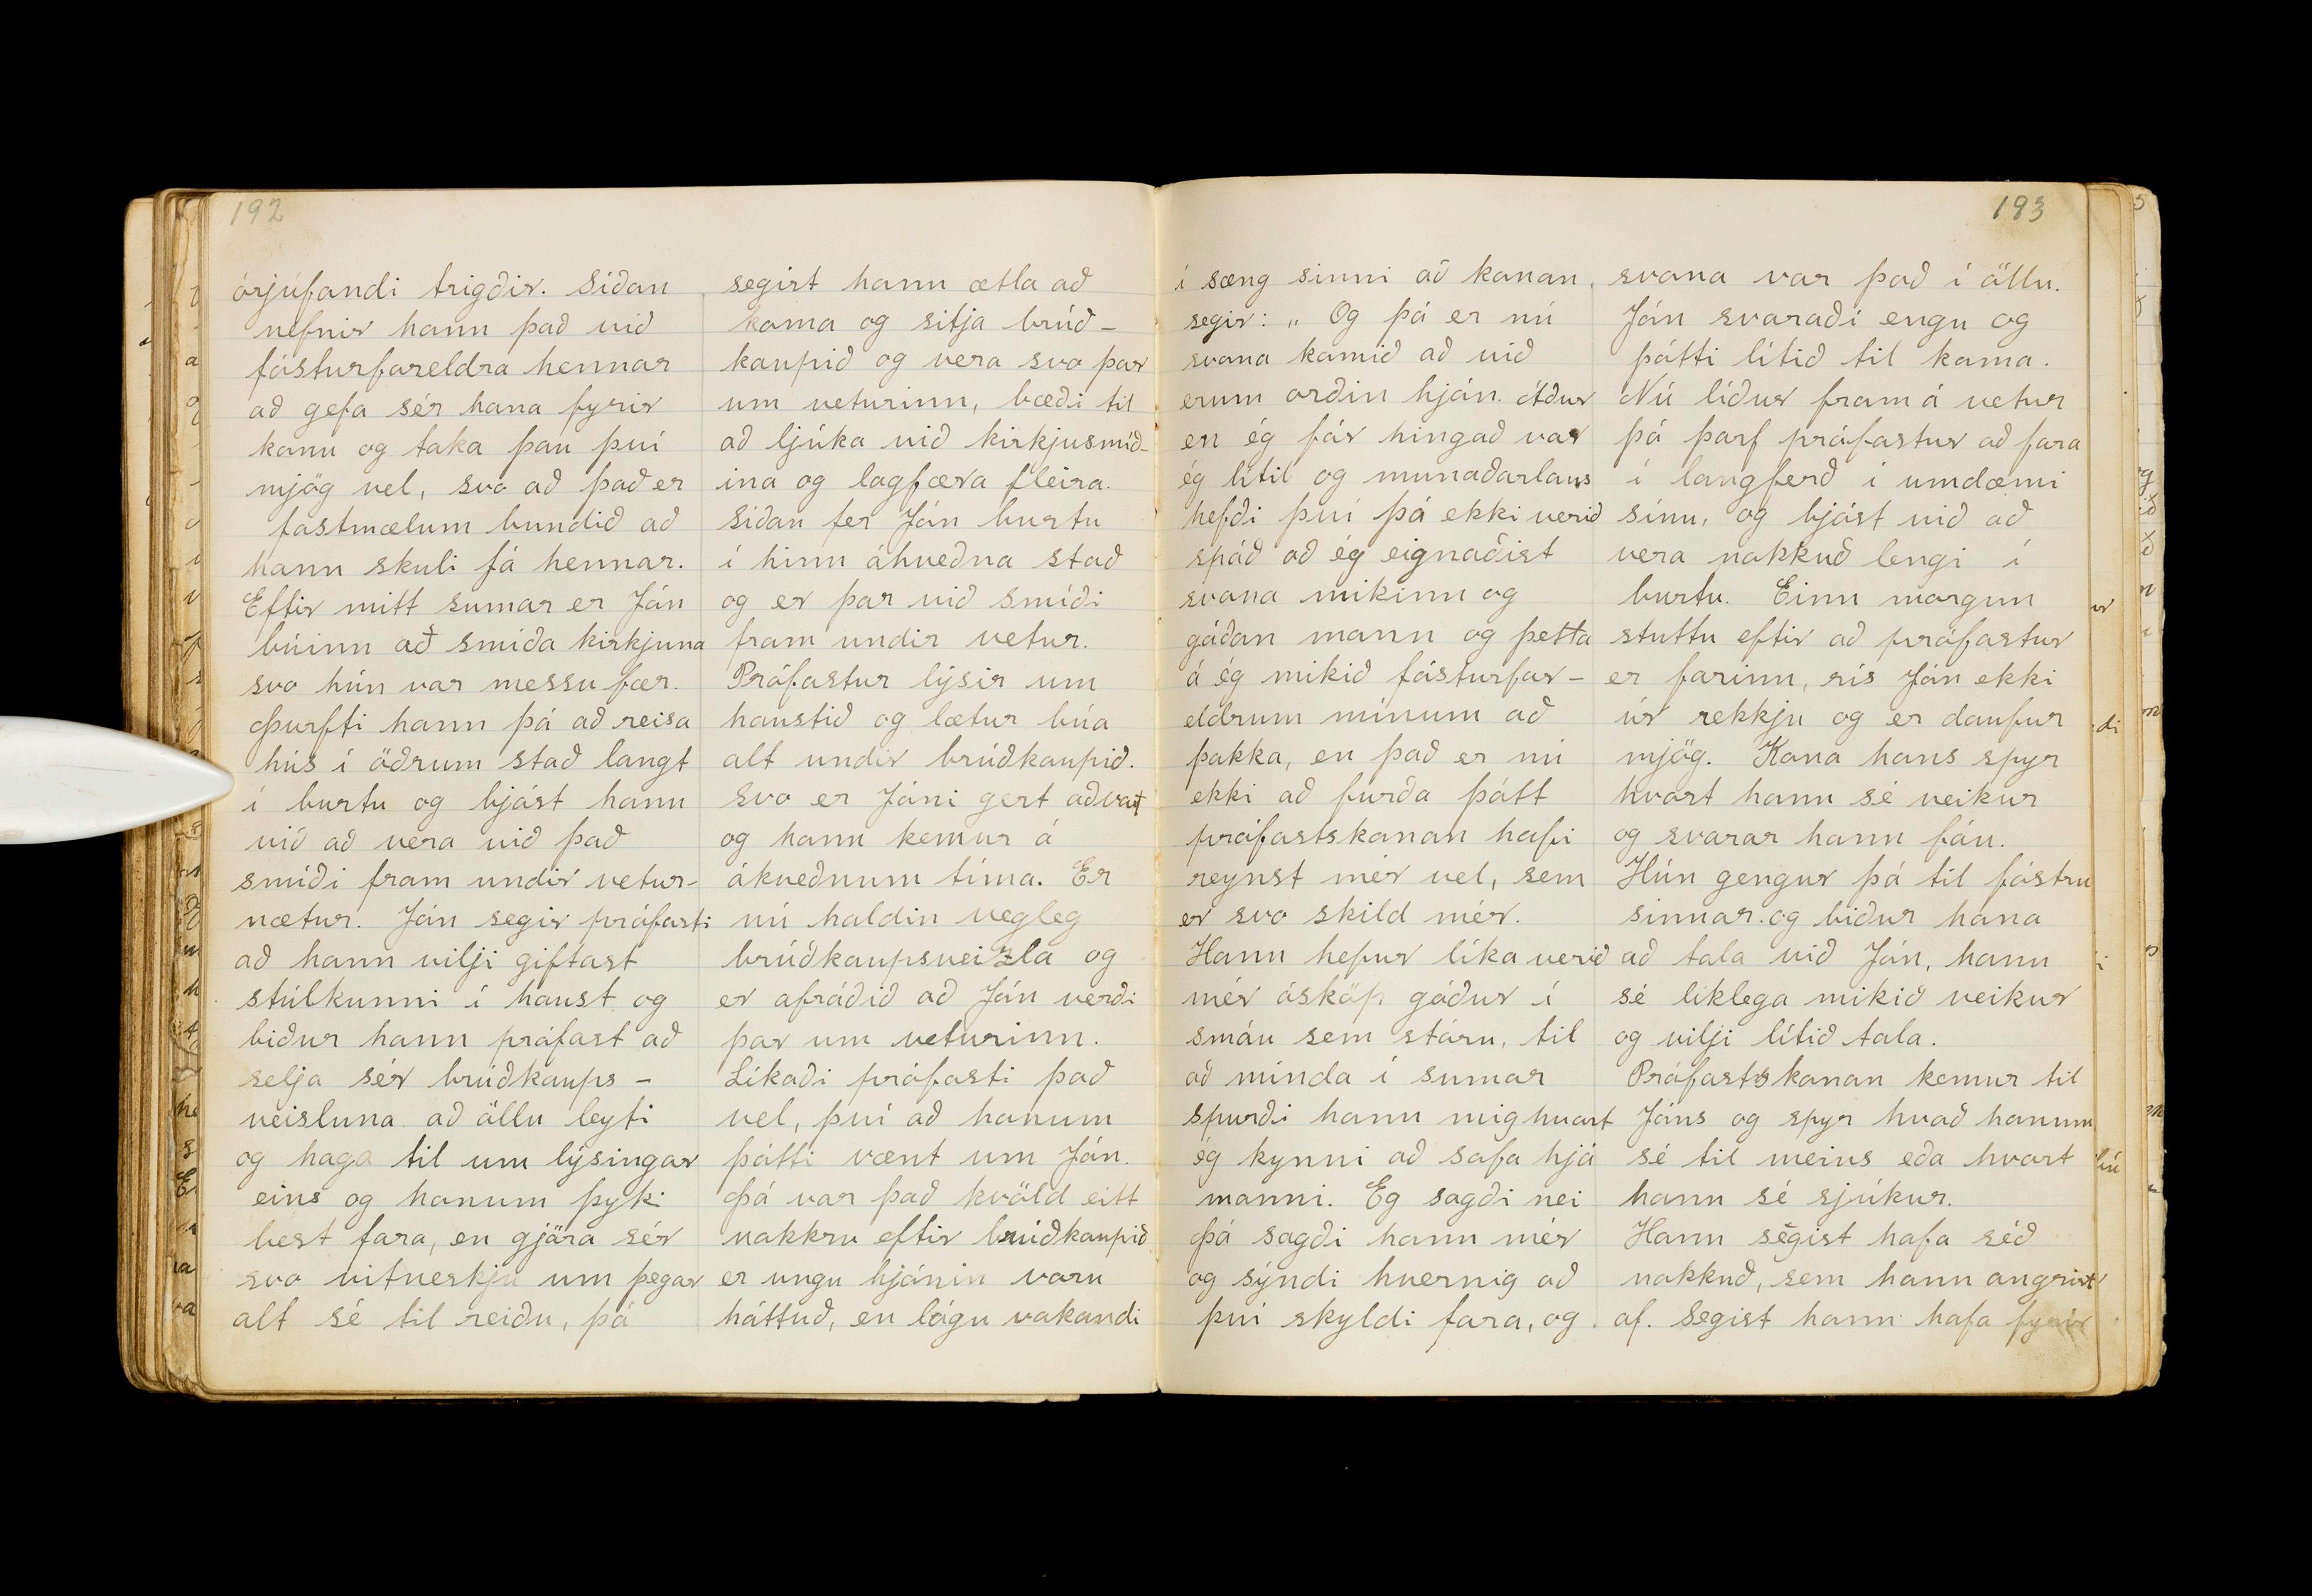 192
órjúfandi trigðir. Síðan
nefnir hann það við
fósturforeldra hennar
að gefa sér hana fyrir
konu og taka þau því
mjög vel, svo að það er
fastmælum bundið að
hann skuli fá hennar.
Eftir mitt sumar er Jón
búinn að smíða kirkjuna
svo hún var messufær.
Þurfti hann þá að reisa
hús í öðrum stað langt
í burtu og bjóst hann
við að vera við það
smíði fram undir vetur-
nætur. Jón segir prófasti
að hann vilji giftast
stúlkunni í haust og
biður hann prófast að
selja sér brúðkaups-
veisluna að öllu leyti
og haga til um lýsingar
eins og honum þyki
best fara, en gjöra sér
svo vitneskju um þegar
alt sé til reiðu, þá
segist hann ætla að
koma og sitja brúð-
kaupið og vera svo þar
um veturinn, bæði til
að ljúka við kirkjusmíð-
ina og lagfæra fleira.
Síðan fer Jón burtu
í hinn áhveðna stað
og er þar við smíði
fram undir vetur.
Prófastur lýsir um
haustið og lætur búa
alt undir brúðkaupið.
Svo er Jóni gert aðvart
og hann kemur á
ákveðnum tíma. Er
nú haldin vegleg
brúðkaupsveizla og
er afráðið að Jón verði
þar um veturinn.
Líkaði prófasti það
vel, því að honum
þótti vænt um Jón.
Þá var það kvöld eitt
nokkru eftir brúðkaupið
er ungu hjónin voru
háttuð, en lágu vakandi
193
í sæng sinni að konan
segir: „Og þá er nú
svona komið að við
erum orðin hjón. Áður
en ég fór hingað var
ég lítil og munaðarlaus
hefði því þá ekki verið
spáð að ég eignaðist
svona mikinn og
góðan mann og þetta
á ég mikið fósturfor-
eldrum mínum að
þakka, en það er nú
ekki að furða þótt
prófastskonan hafi
reynst mér vel, sem
er svo skild mér.
Hann hefur líka verið
mér ósköp góður í
smáu sem stóru, til
að minda í sumar
spurði hann mig hvort
ég kynni að sofa hjá
manni. Eg sagði nei
Þá sagði hann mér
og sýndi hvernig að
því skyldi fara, og
svona var það í öllu.
Jón svaraði engu og
þótti lítið til koma.
Nú líður fram á vetur
þá þarf prófastur að fara
í langferð í umdæmi
sínu, og bjóst við að
vera nokkuð lengi í
burtu. Einn morgun
stuttu eftir að prófastur
er farinn, rís Jón ekki
úr rekkju og er daufur
mjög. Kona hans spyr
hvort hann sé veikur
og svarar hann fáu.
Hún gengur þá til fóstru
sinnar og biður hana
að tala við Jón, hann
sé líklega mikið veikur
og vilji lítið tala.
Prófastskonan kemur til
Jóns og spyr hvað honum
sé til meins eða hvort
hann sé sjúkur.
Hann segist hafa séð
nokkuð, sem hann angrist
af. Segist hann hafa fyrir